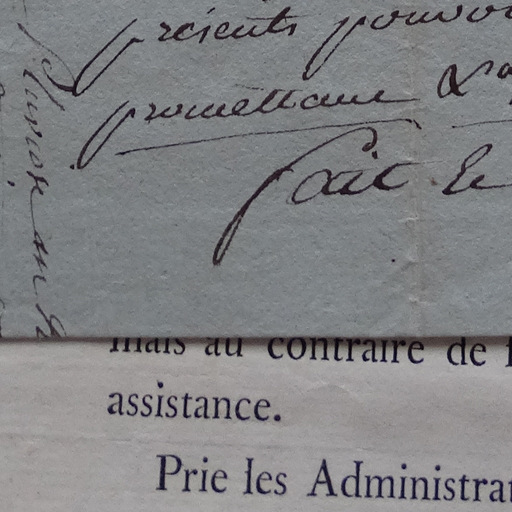 présents pouvo
promettant &a
fait le
mais au contraire de f
assistance.
Prie les Administra